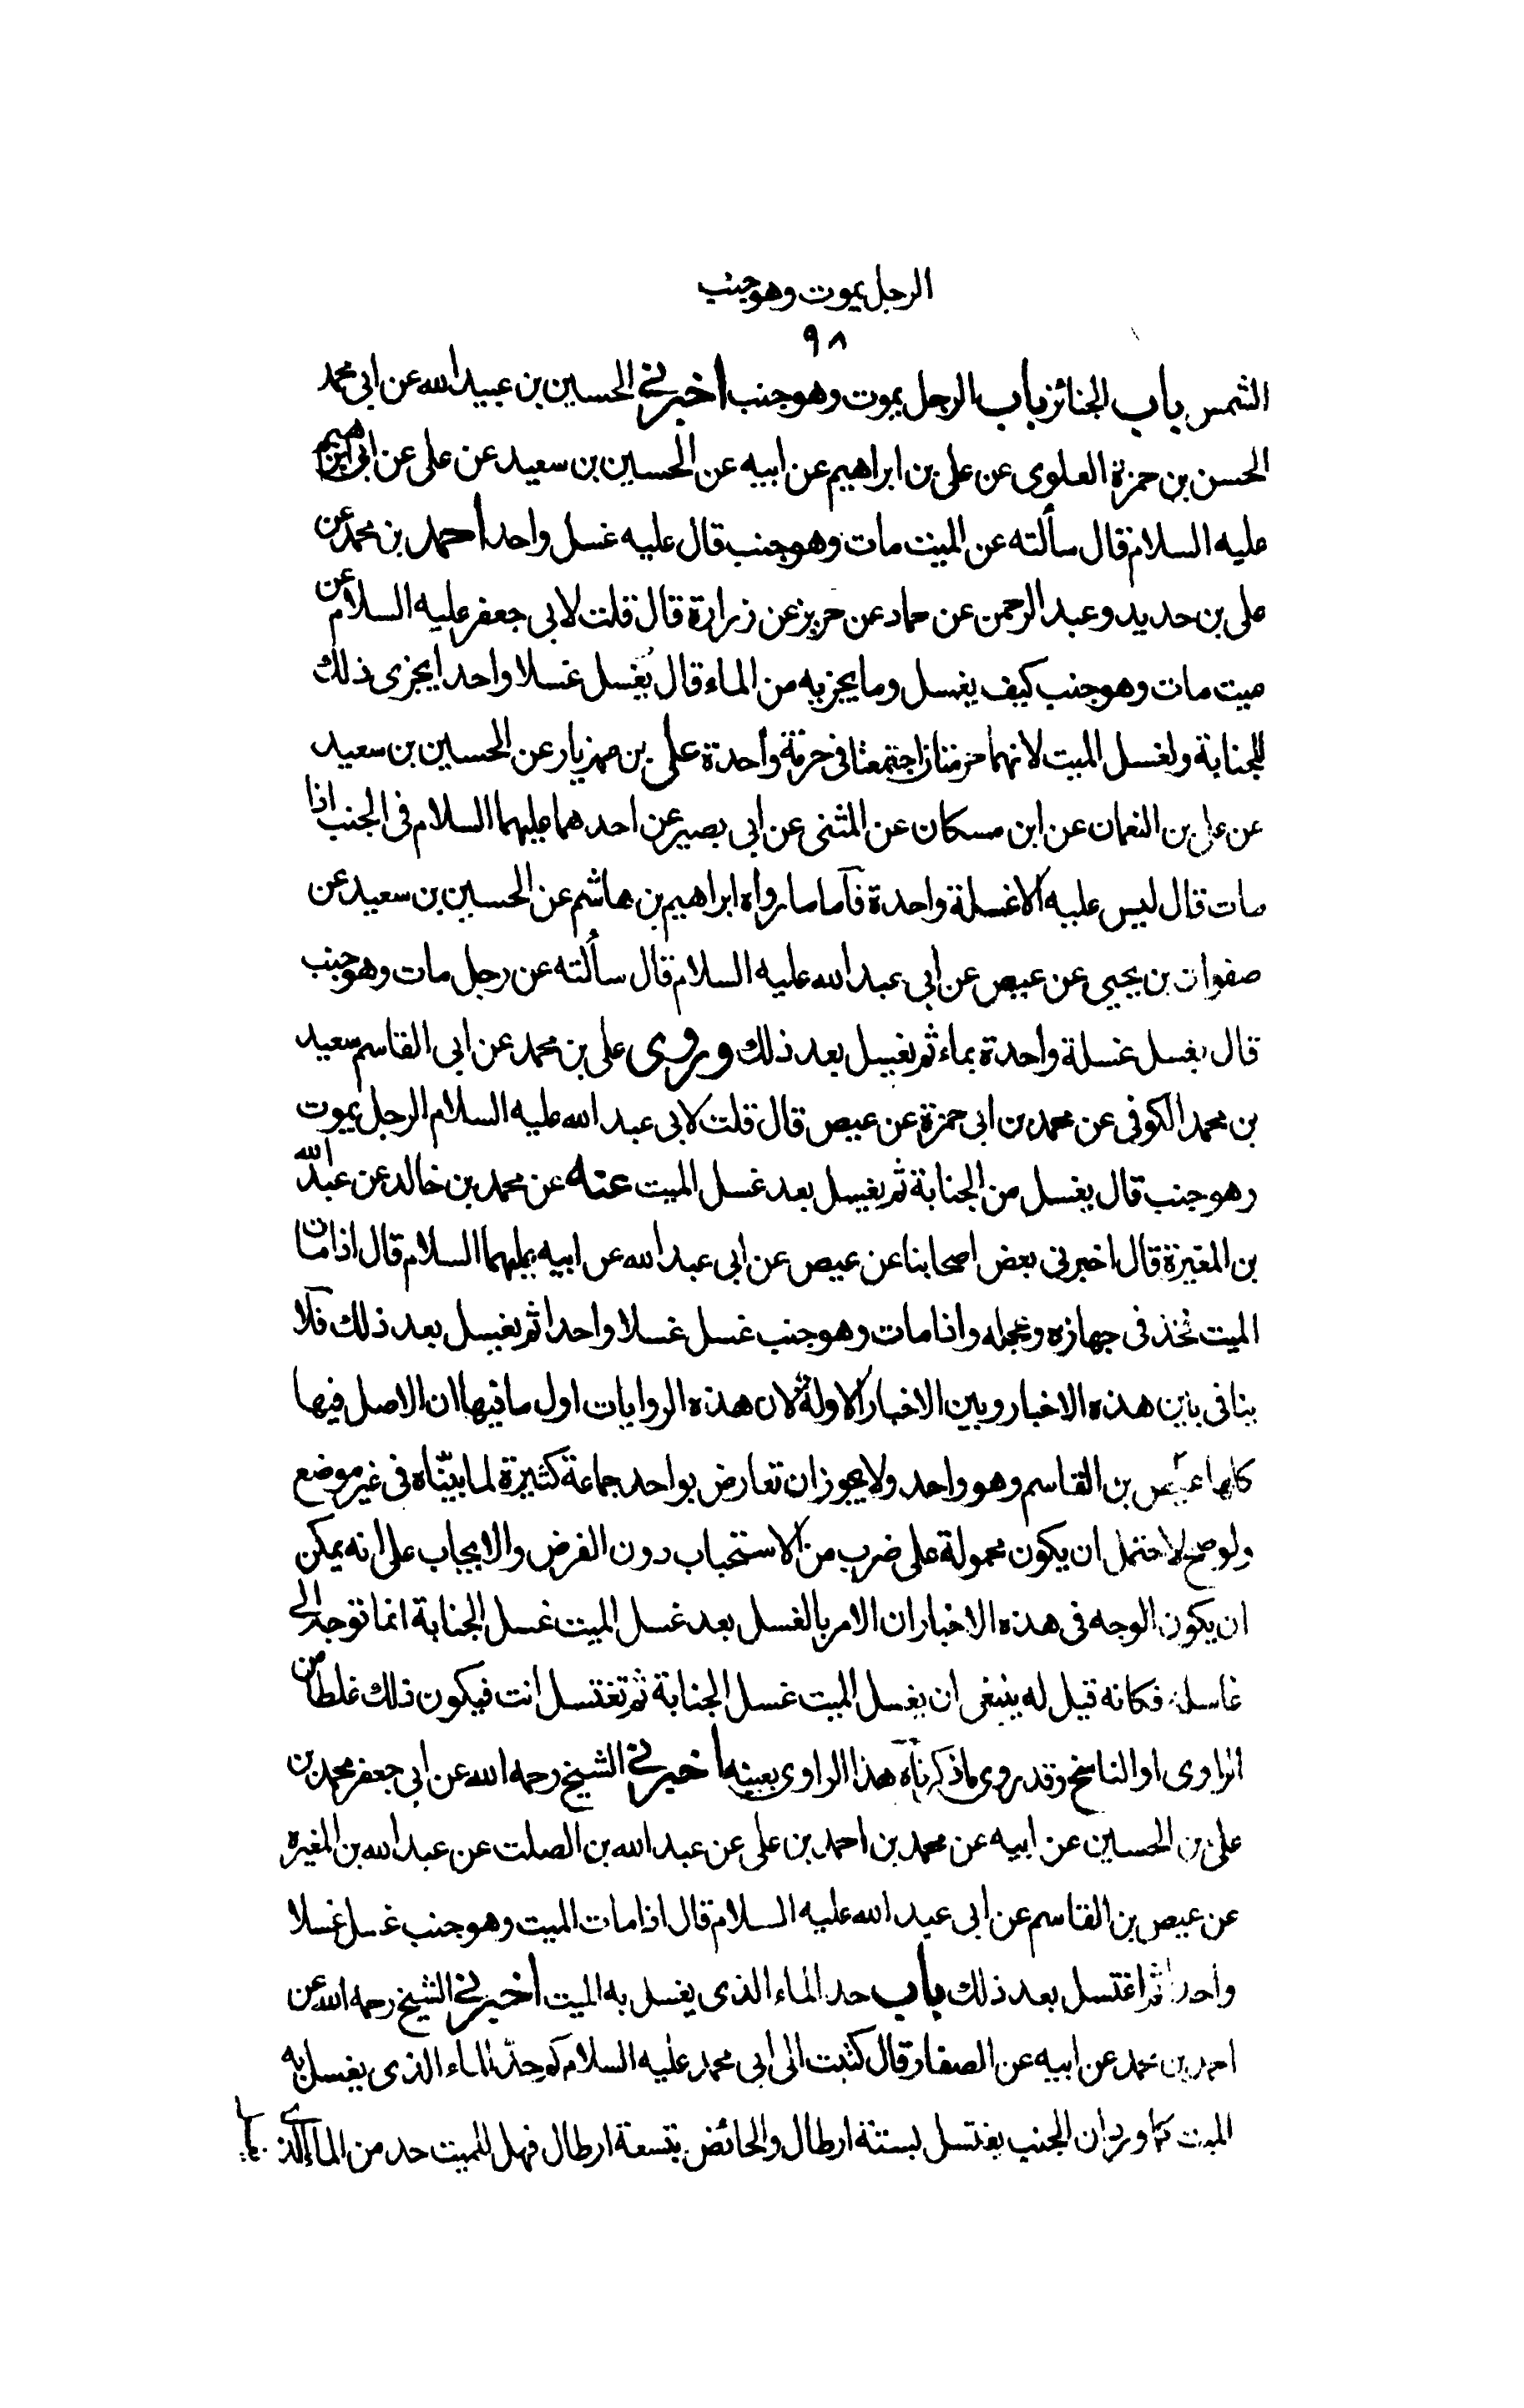 الرجل يموت وهو جنب
٩٨
الشمس باب الجنائز باب الرجل يموت وهو جنب اخبرني الحسين بن عبيد الله عن ابى محمد
الحسن بن حمزة العلوى عن على بن ابراهيم عن ابيه عن الحسين بن سعيد عن على عن ابى ابرهيم
عليه السلام قال سألته عن الميت مات وهو جنب قال عليه غسل واحد احمد بن محمد عن
على بن حديد وعبد الرحمن عن حماد عن حريز عن زرارة قال قلت لابى جعفر عليه السلام عن
ميت مات وهو جنب كيف يغسل وما يجزيه من الماء قال يُغسل غسلا واحدا يجزى ذلك
للجنابة ولغسل الميت لانهما حرمتان اجتمعتا فى حرمة واحدة على بن مهزيار عن الحسين بن سعيد
عن على بن النعمان عن ابن مسكان عن المثنى عن ابى بصير عن احدهما عليهما السلام فى الجنب اذا
مات قال ليس عليه الا غسلة واحدة فاما ما رواه ابراهيم بن هاشم عن الحسين بن سعيد عن
صفوان بن يحيى عن عيص عن ابى عبد الله عليه السلام قال سألته عن رجل مات وهو جنب
قال يغسل غسلة واحدة بماء ثم يغسل بعد ذلك وروى على بن محمد عن ابى القاسم سعيد
بن محمد الكوفى عن محمد بن ابى حمزة عن عيص قال قلت لابى عبد الله عليه السلام الرجل يموت
وهو جنب قال يغسل من الجنابة ثم يغسل بعد غسل الميت عنه عن محمد بن خالد عن عبد الله
بن المغيرة قال اخبرنى بعض اصحابنا عن عيص عن ابى عبد الله عن ابيه عليهما السلام قال اذا مات
الميت فخذ فى جهازه وعجله واذا مات وهو جنب غسل غسلا واحدا ثم يغسل بعد ذلك فلا
ينافى بين هذه الاخبار وبين الاخبار الاولة لان هذه الروايات اول ما فيها ان الاصل فيها
كلها عيص بن القاسم وهو واحد ولا يجوز ان تعارض بواحد جماعة كثيرة لما بيّناه فى غير موضع
ولو صح لاحتمل ان يكون محمولة على ضرب من الاستحباب دون الفرض والايجاب على انه يمكن
ان يكون الوجه فى هذه الاخبار ان الامر بالغسل بعد غسل الميت غسل الجنابة انما توجه الى
غاسله فكانه قيل له ينبغى ان يغسل الميت غسل الجنابة ثم تغتسل انت فيكون ذلك غلطا من
الراوى او الناسخ وقد روى ما ذكرناه هذا الراوى بعينه اخبرني الشيخ رحمه الله عن ابى جعفر محمد بن
على بن الحسين عن ابيه عن محمد بن احمد بن على عن عبد الله بن الصلت عن عبد الله بن المغيره
عن عيص بن القاسم عن ابى عبد الله عليه السلام قال اذا مات الميت وهو جنب غسل غسلا
واحدا ثم اغتسل بعد ذلك باب حد الماء الذى يغسل به الميت اخبرني الشيخ رحمه الله عن
احمد بن محمد عن ابيه عن الصفار قال كتبت الى ابى محمد عليه السلام كم حدّ الماء الذى يغسل به
الميت كما ورد ان الجنب يغتسل بستة ارطال والحائض بتسعة ارطال فهل للميت حد من الماء الذى